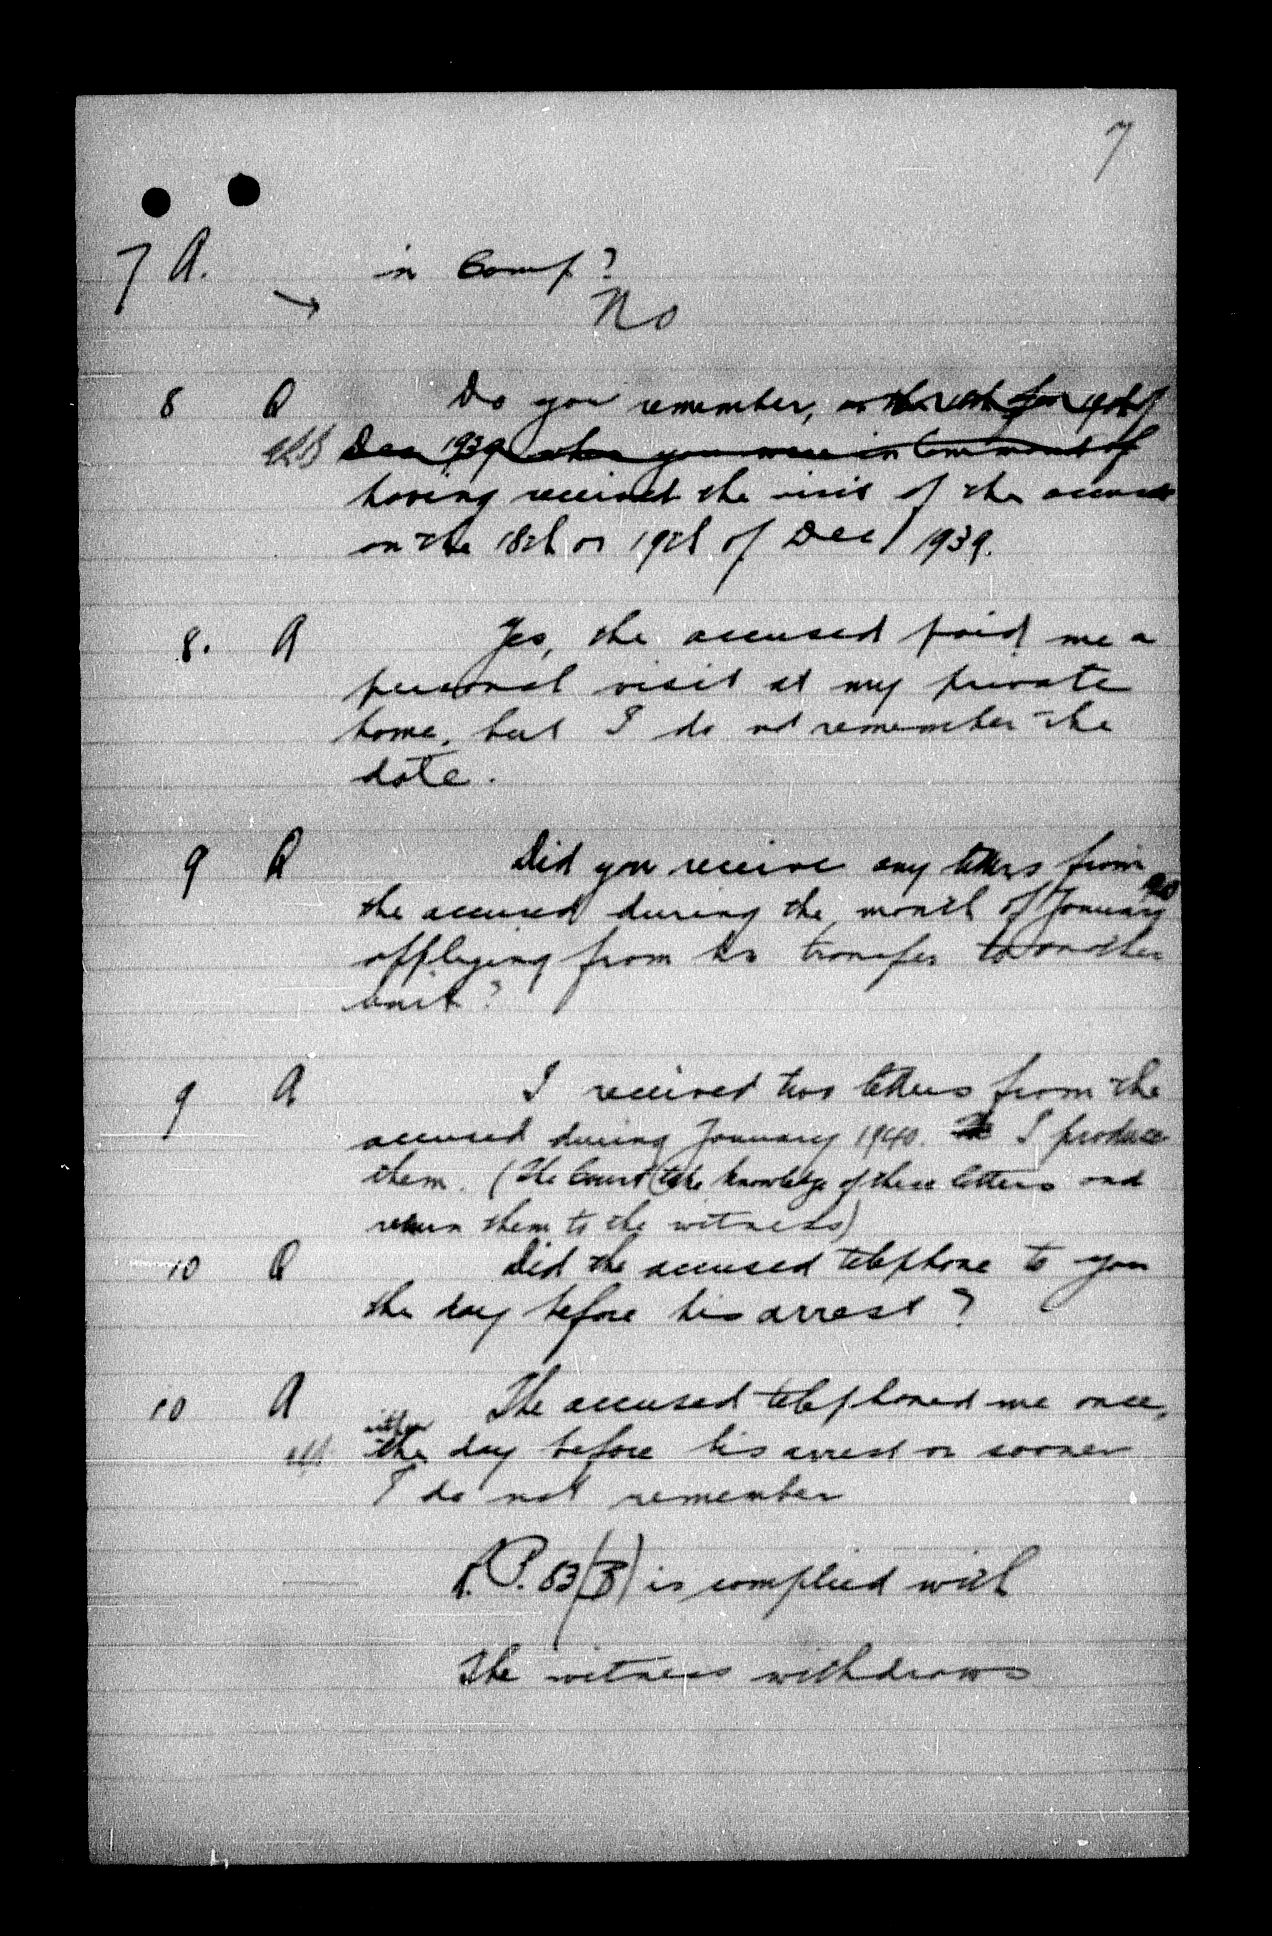 7
7 A. in Camp?
→ No
8 Q Do you remember, on the 18th or 19th of
Dec 1939 when you were in Command of
having received the visit of the accused
on the 18th or 19th of Dec/1939.
8. A Yes, the accused paid me a
personal visit at my private
home, but I do not remember the
date.
9 Q Did you receive any letters from
the accused during the month of January 40
applying from his transfer to another
unit?
9 A I received two letters from the
accused during January 1940. I produce
them. (The Court take knowledge of these letters and
return them to the witness)
10 Q Did the accused telephone to you
the day before his arrest?
10 A The accused telephoned me once,
either
the day before his arrest or sooner
I do not remember
R.P. 83(B) is complied with
The witness withdraws